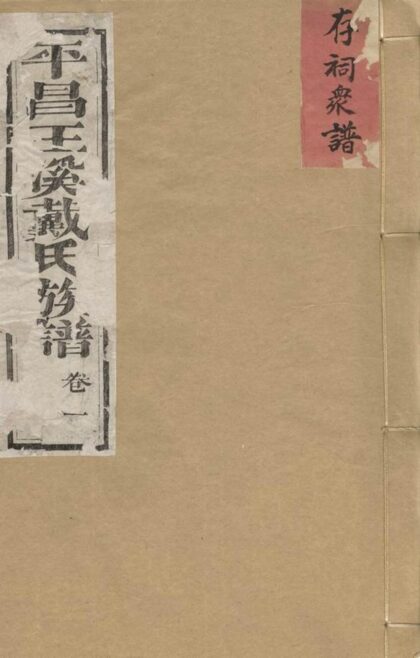 存祠衆譜
平昌王溪戴氏族譜
卷一